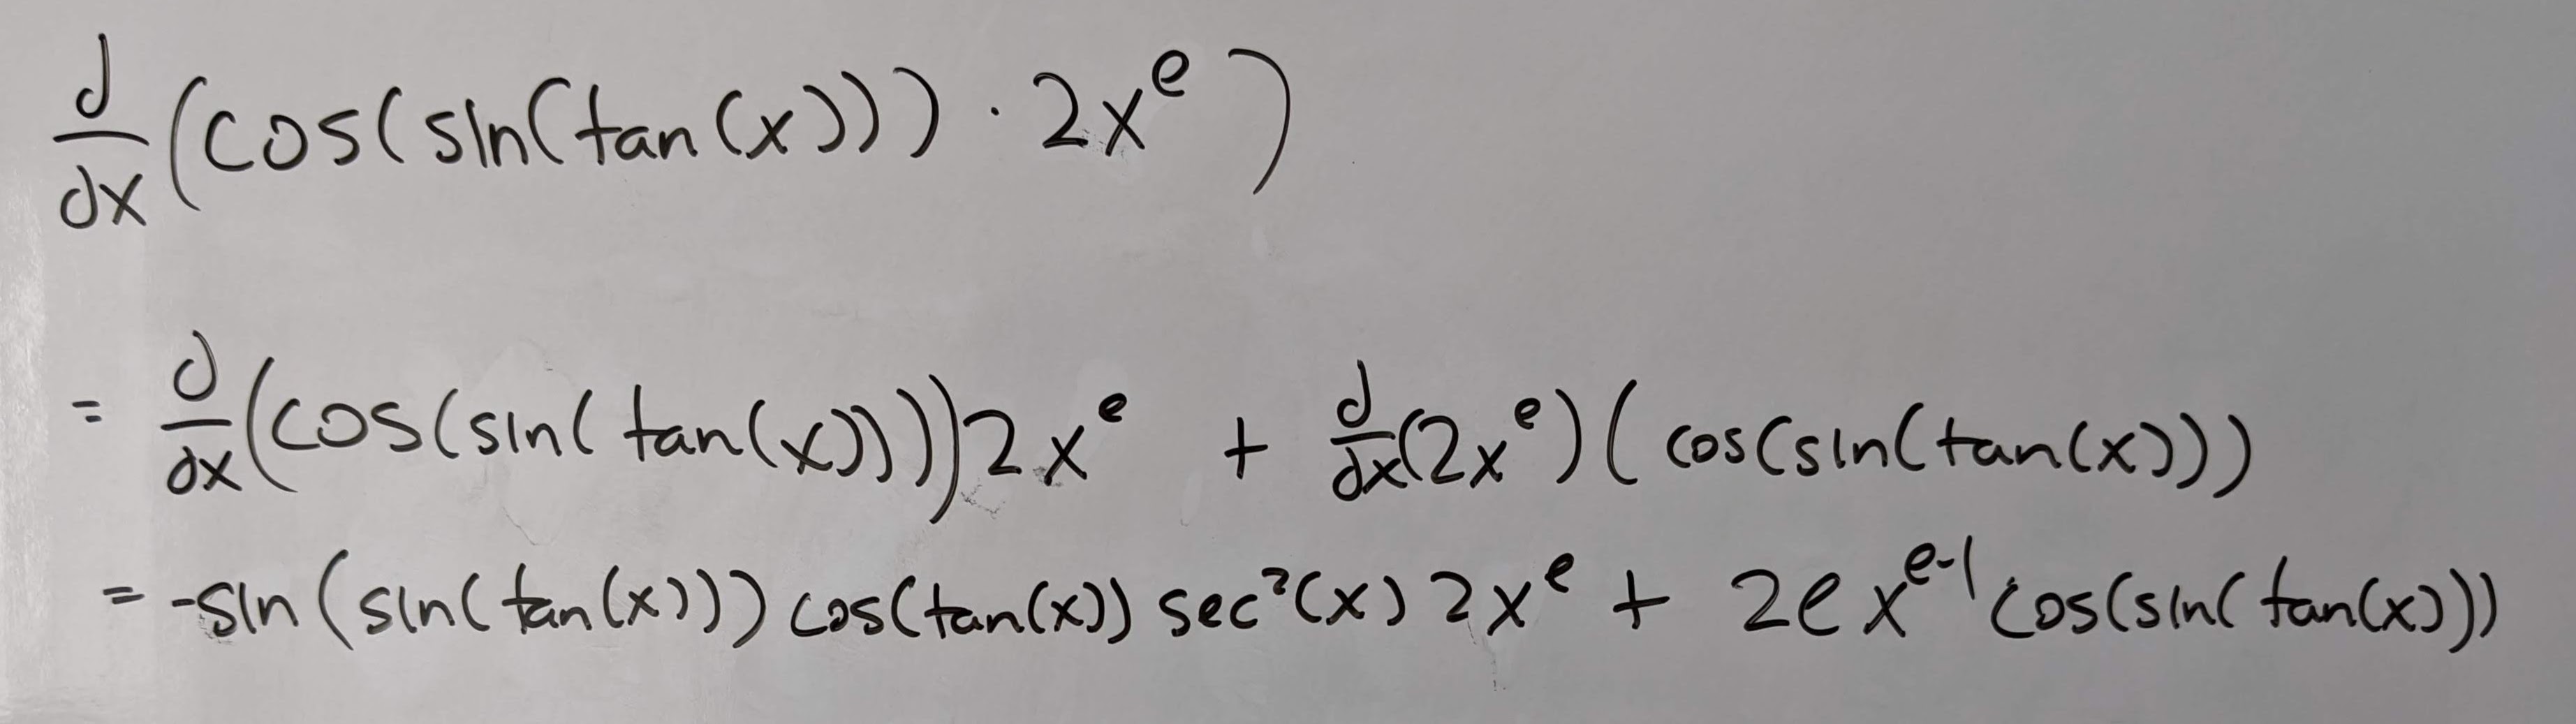 d/dx (cos(sin(tan(x))) · 2x^e)
= d/dx (cos(sin(tan(x)))) 2x^e + d/dx (2x^e) (cos(sin(tan(x)))
= -sin(sin(tan(x))) cos(tan(x)) sec²(x) 2x^e + 2e x^(e-1) cos(sin(tan(x)))